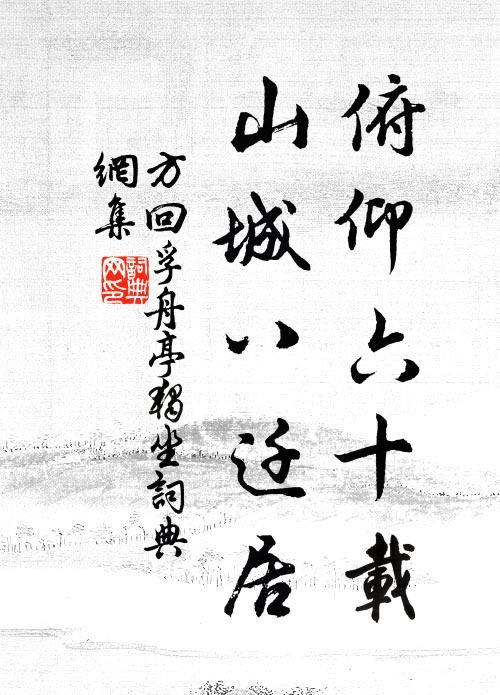 俯仰六十載
山城八迁居
方回孚舟亭獨坐詞典
網集
詞典网印